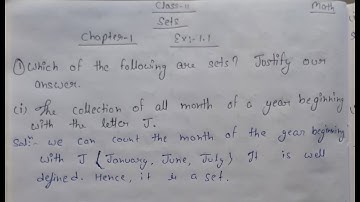 Class-11 Math
Sets
Chapter-1 Ex:-1.1
① Which of the following are sets? Justify our
answer.
(i) The collection of all month of a year beginning
with the letter J.
Sol:- we can count the month of the year beginning
with J {January, June, July} It is well
defined. Hence, it is a set.